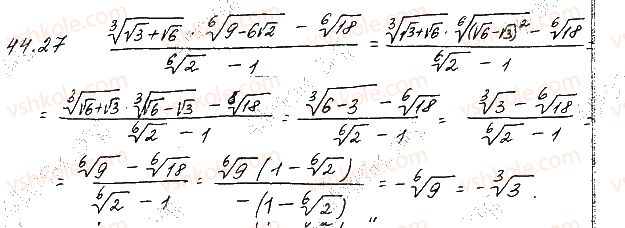 44.27 (∛(√3+√6) · ⁶√(9-6√2) - ⁶√18) / (⁶√2 - 1) = (∛(√3+√6) · ⁶√((√6-√3)²) - ⁶√18) / (⁶√2 - 1) =
= (∛(√6+√3) · ∛(√6-√3) - ⁶√18) / (⁶√2 - 1) = (∛(6-3) - ⁶√18) / (⁶√2 - 1) = (∛3 - ⁶√18) / (⁶√2 - 1) =
= (⁶√9 - ⁶√18) / (⁶√2 - 1) = ⁶√9 (1 - ⁶√2) / -(1 - ⁶√2) = -⁶√9 = -∛3.